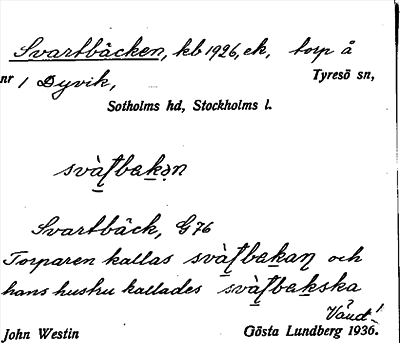 Svartbäcken, kb 1926, ek, torp å
nr 1 Dyvik, Tyresö sn,
Sotholms hd, Stockholms l.
svàʈbakən
Svartbäck, G 76
Torparen kallas svàʈbakaɳ och
hans hustru kallades svàʈbakska
Vänd!
John Westin Gösta Lundberg 1936.